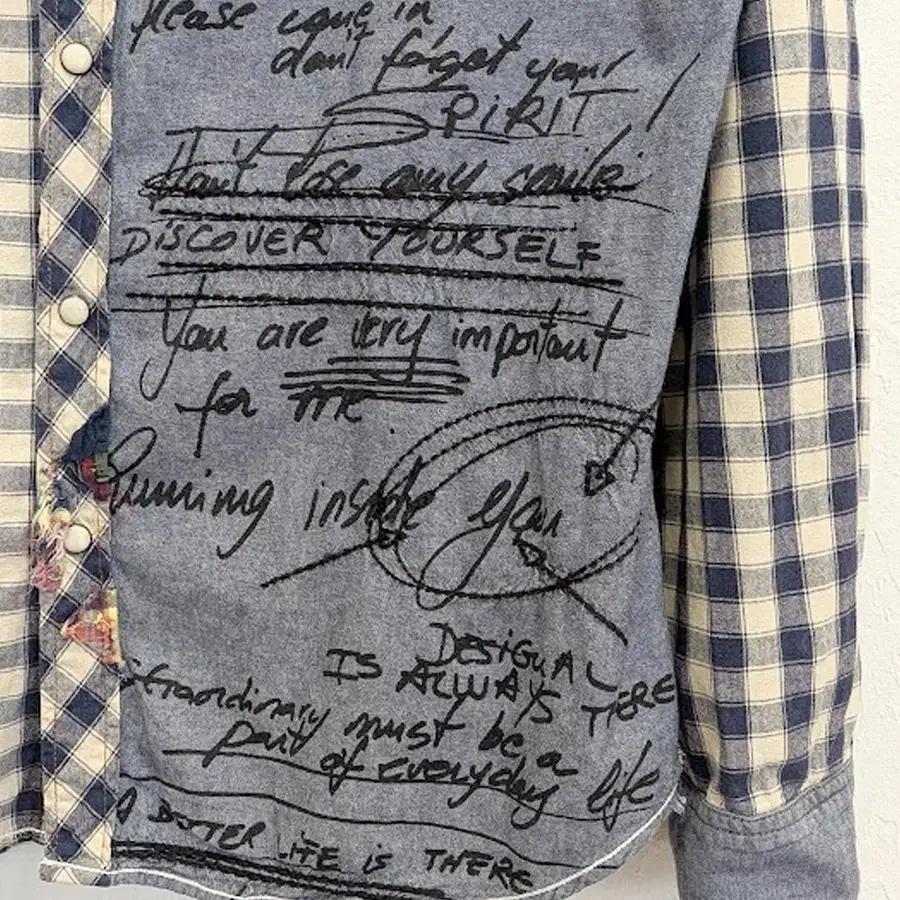 please come in
don't forget your
SPiRiT
don't lose any smile
DiSCOVER YOURSELF
You are very important
for me
Running inside you
DESiGUAL
IS ALWAYS THERE
extraordinary must be a
part of everyday life
A BETTER LiFE iS THERE